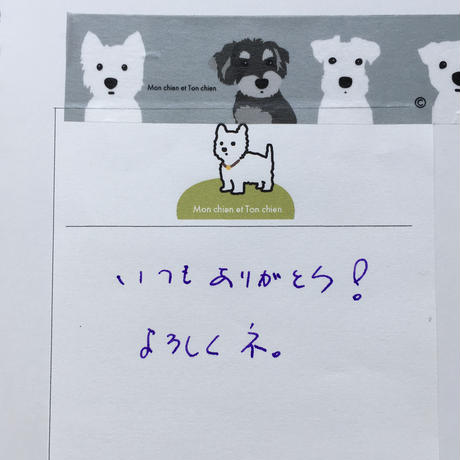 Mon chien et Ton chien
©
Mon chien et Ton chien.
いつもありがとう!
よろしくネ。